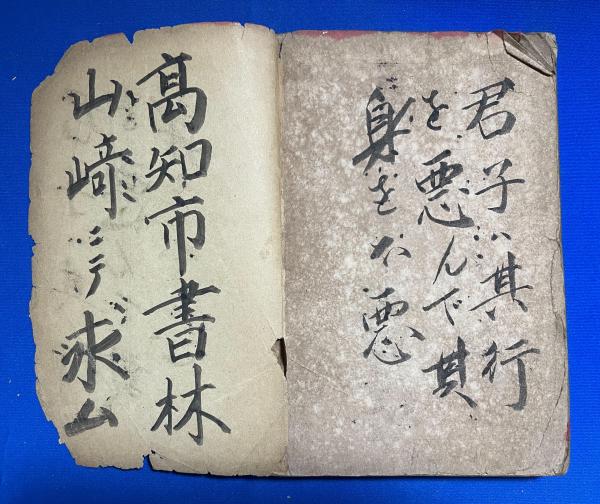 君子ハ其行
を悪んで其
身を不悪
高知市書林
山﨑ニテ求ム